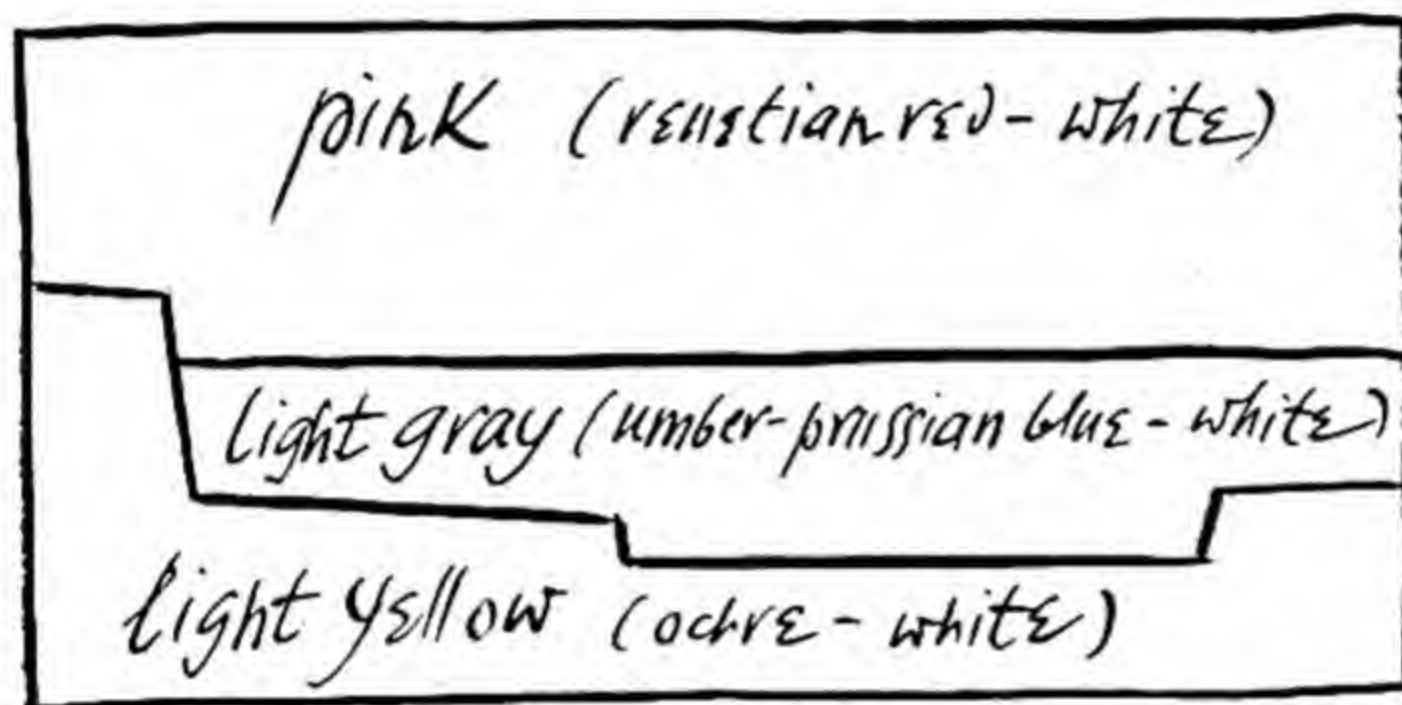 pink (venetian red - white)
light gray (umber-prussian blue - white)
light yellow (ochre - white)